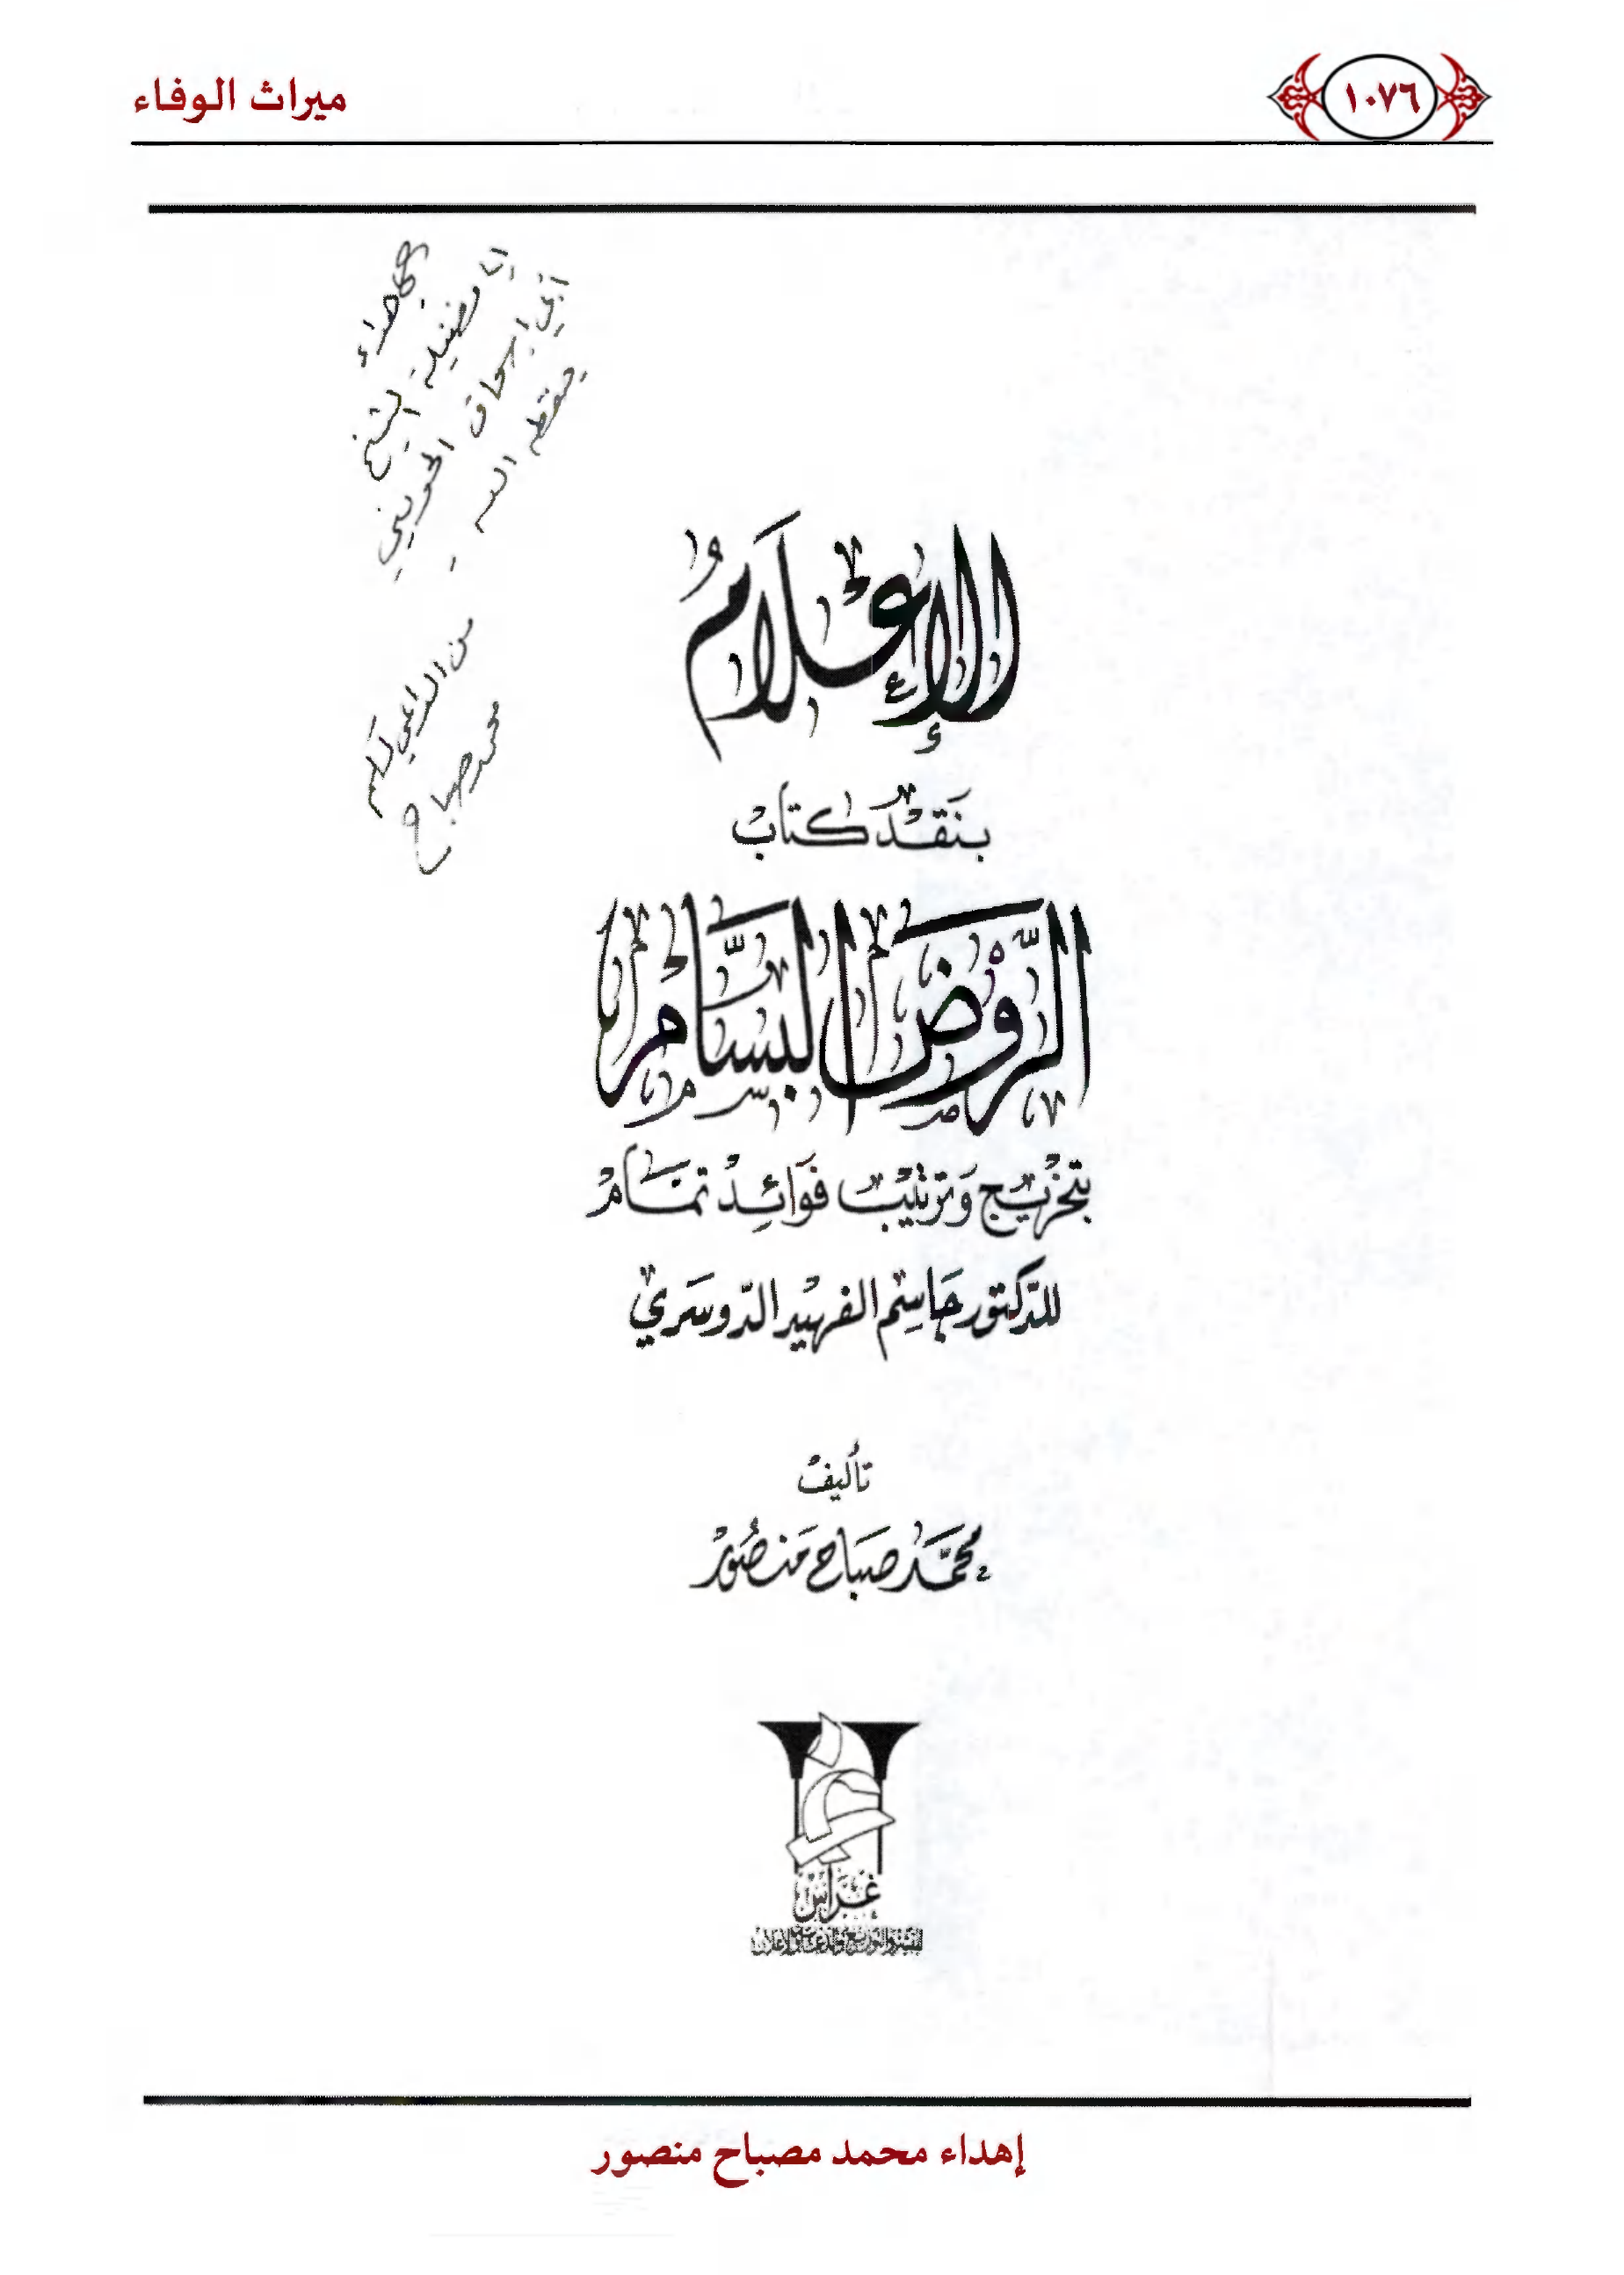 ١٠٧٦
ميراث الوفاء
إهداء
إلى فضيلة الشيخ
أبي إسحاق الحويني
حفظه الله
من الداعي لكم
محمد صباح
الإعلام
بنقد كتاب
الروض البسام
بتخريج وترتيب فوائد تمام
للدكتور جاسم الفهيد الدوسري
تأليف
محمد صباح منصور
غراس
للنشر والتوزيع والدعاية والإعلان
إهداء محمد مصباح منصور